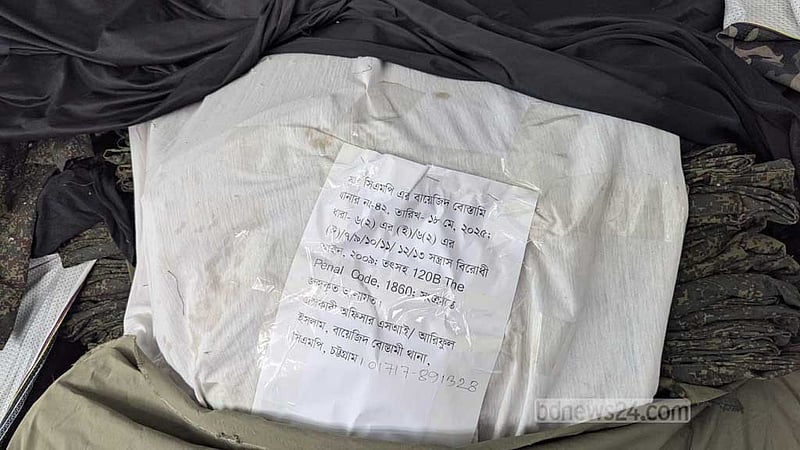 সিএমপি এর বায়েজিদ বোস্তামি
থানার নং-৪২, তারিখ- ১৮ মে, ২০২৫;
ধারা- ৬(২) এর (ই)/৬(২) এর
/৭/৮/১০/১১/ ১২/১৩ সন্ত্রাস বিরোধী
আইন, ২০০৯; তৎসহ 120B The
Penal Code, 1860;
জব্দকৃত আলামত।
অফিসার এসআই/ আরিফুল
ইসলাম, বায়েজিদ বোস্তামী থানা,
সিএমপি, চট্টগ্রাম। 01717-891328
bdnews24.com